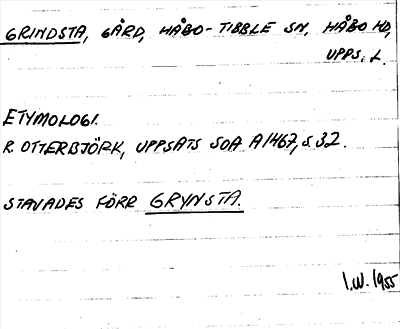 GRINDSTA, GÅRD, HÅBO-TIBBLE SN, HÅBO HD,
UPPS. L.
ETYMOLOGI.
R OTTERBJÖRK, UPPSATS SOA A1467, S 32.
STAVADES FÖRR GRYNSTA.
I.W. 1955